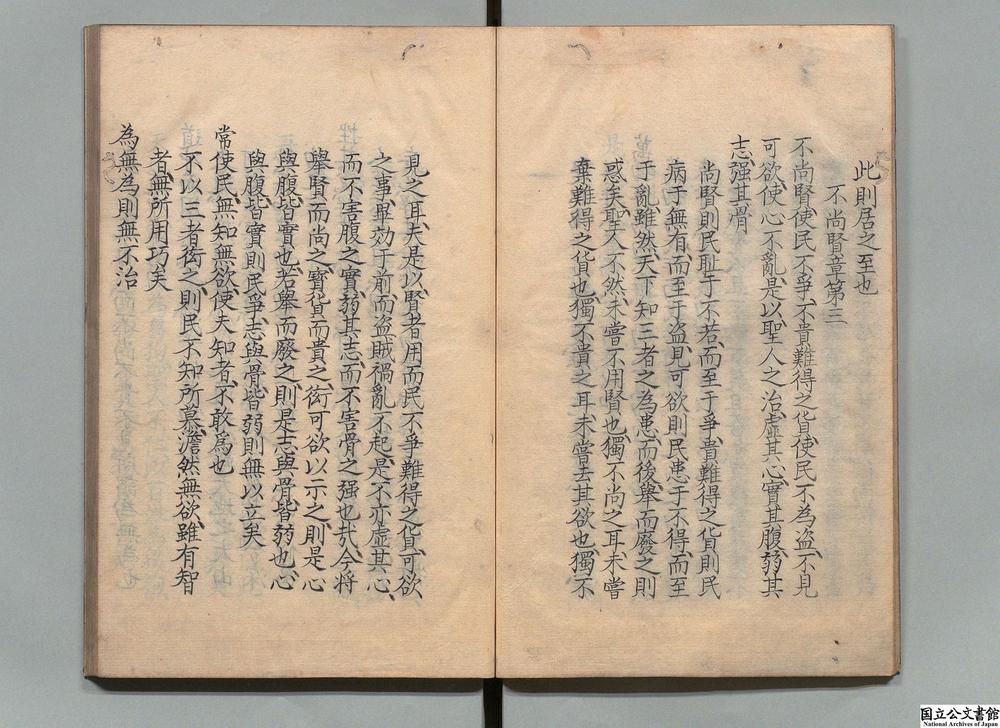 此則居之至也
不尚賢章第三
不尚賢使民不爭不貴難得之貨使民不為盜不見
可欲使心不亂是以聖人之治虛其心實其腹弱其
志强其骨
尚賢則民耻于不若而至于爭貴難得之貨則民
病于無有而至于盜見可欲則民患于不得而至
于亂雖然天下知三者之為患而後舉而廢之則
惑矣聖人不然未嘗不用賢也獨不尚之耳未嘗
棄難得之貨也獨不貴之耳未嘗去其欲也獨不
見之耳夫是以賢者用而民不爭難得之貨可欲
之事畢効于前而盜賊禍亂不起是不亦虛其心
而不害腹之實弱其志而不害骨之强也㢤今将
舉賢而尚之寳貨而貴之衒可欲以示之則是心
與腹皆實也若舉而廢之則是志與骨皆弱也心
與腹皆實則民爭志與骨皆弱則無以立矣
常使民無知無欲使夫知者不敢為也
不以三者衒之則民不知所慕澹然無欲雖有智
者無所用巧矣
為無為則無不治
国立公文書館
National Archives of Japan